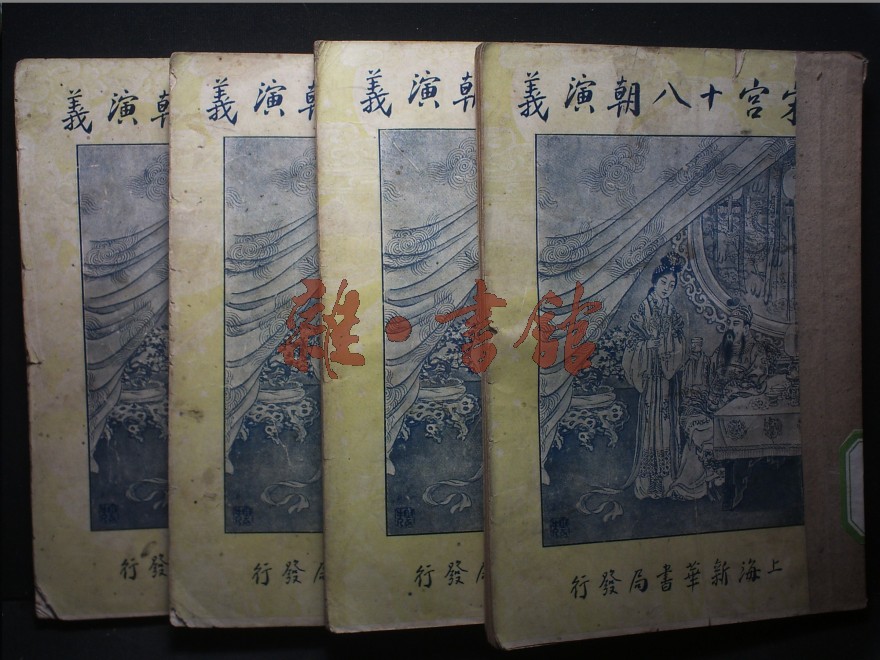 演義
發行
演義
發行
朝演義
發行
宋宮十八朝演義
上海新華書局發行
雜·書館